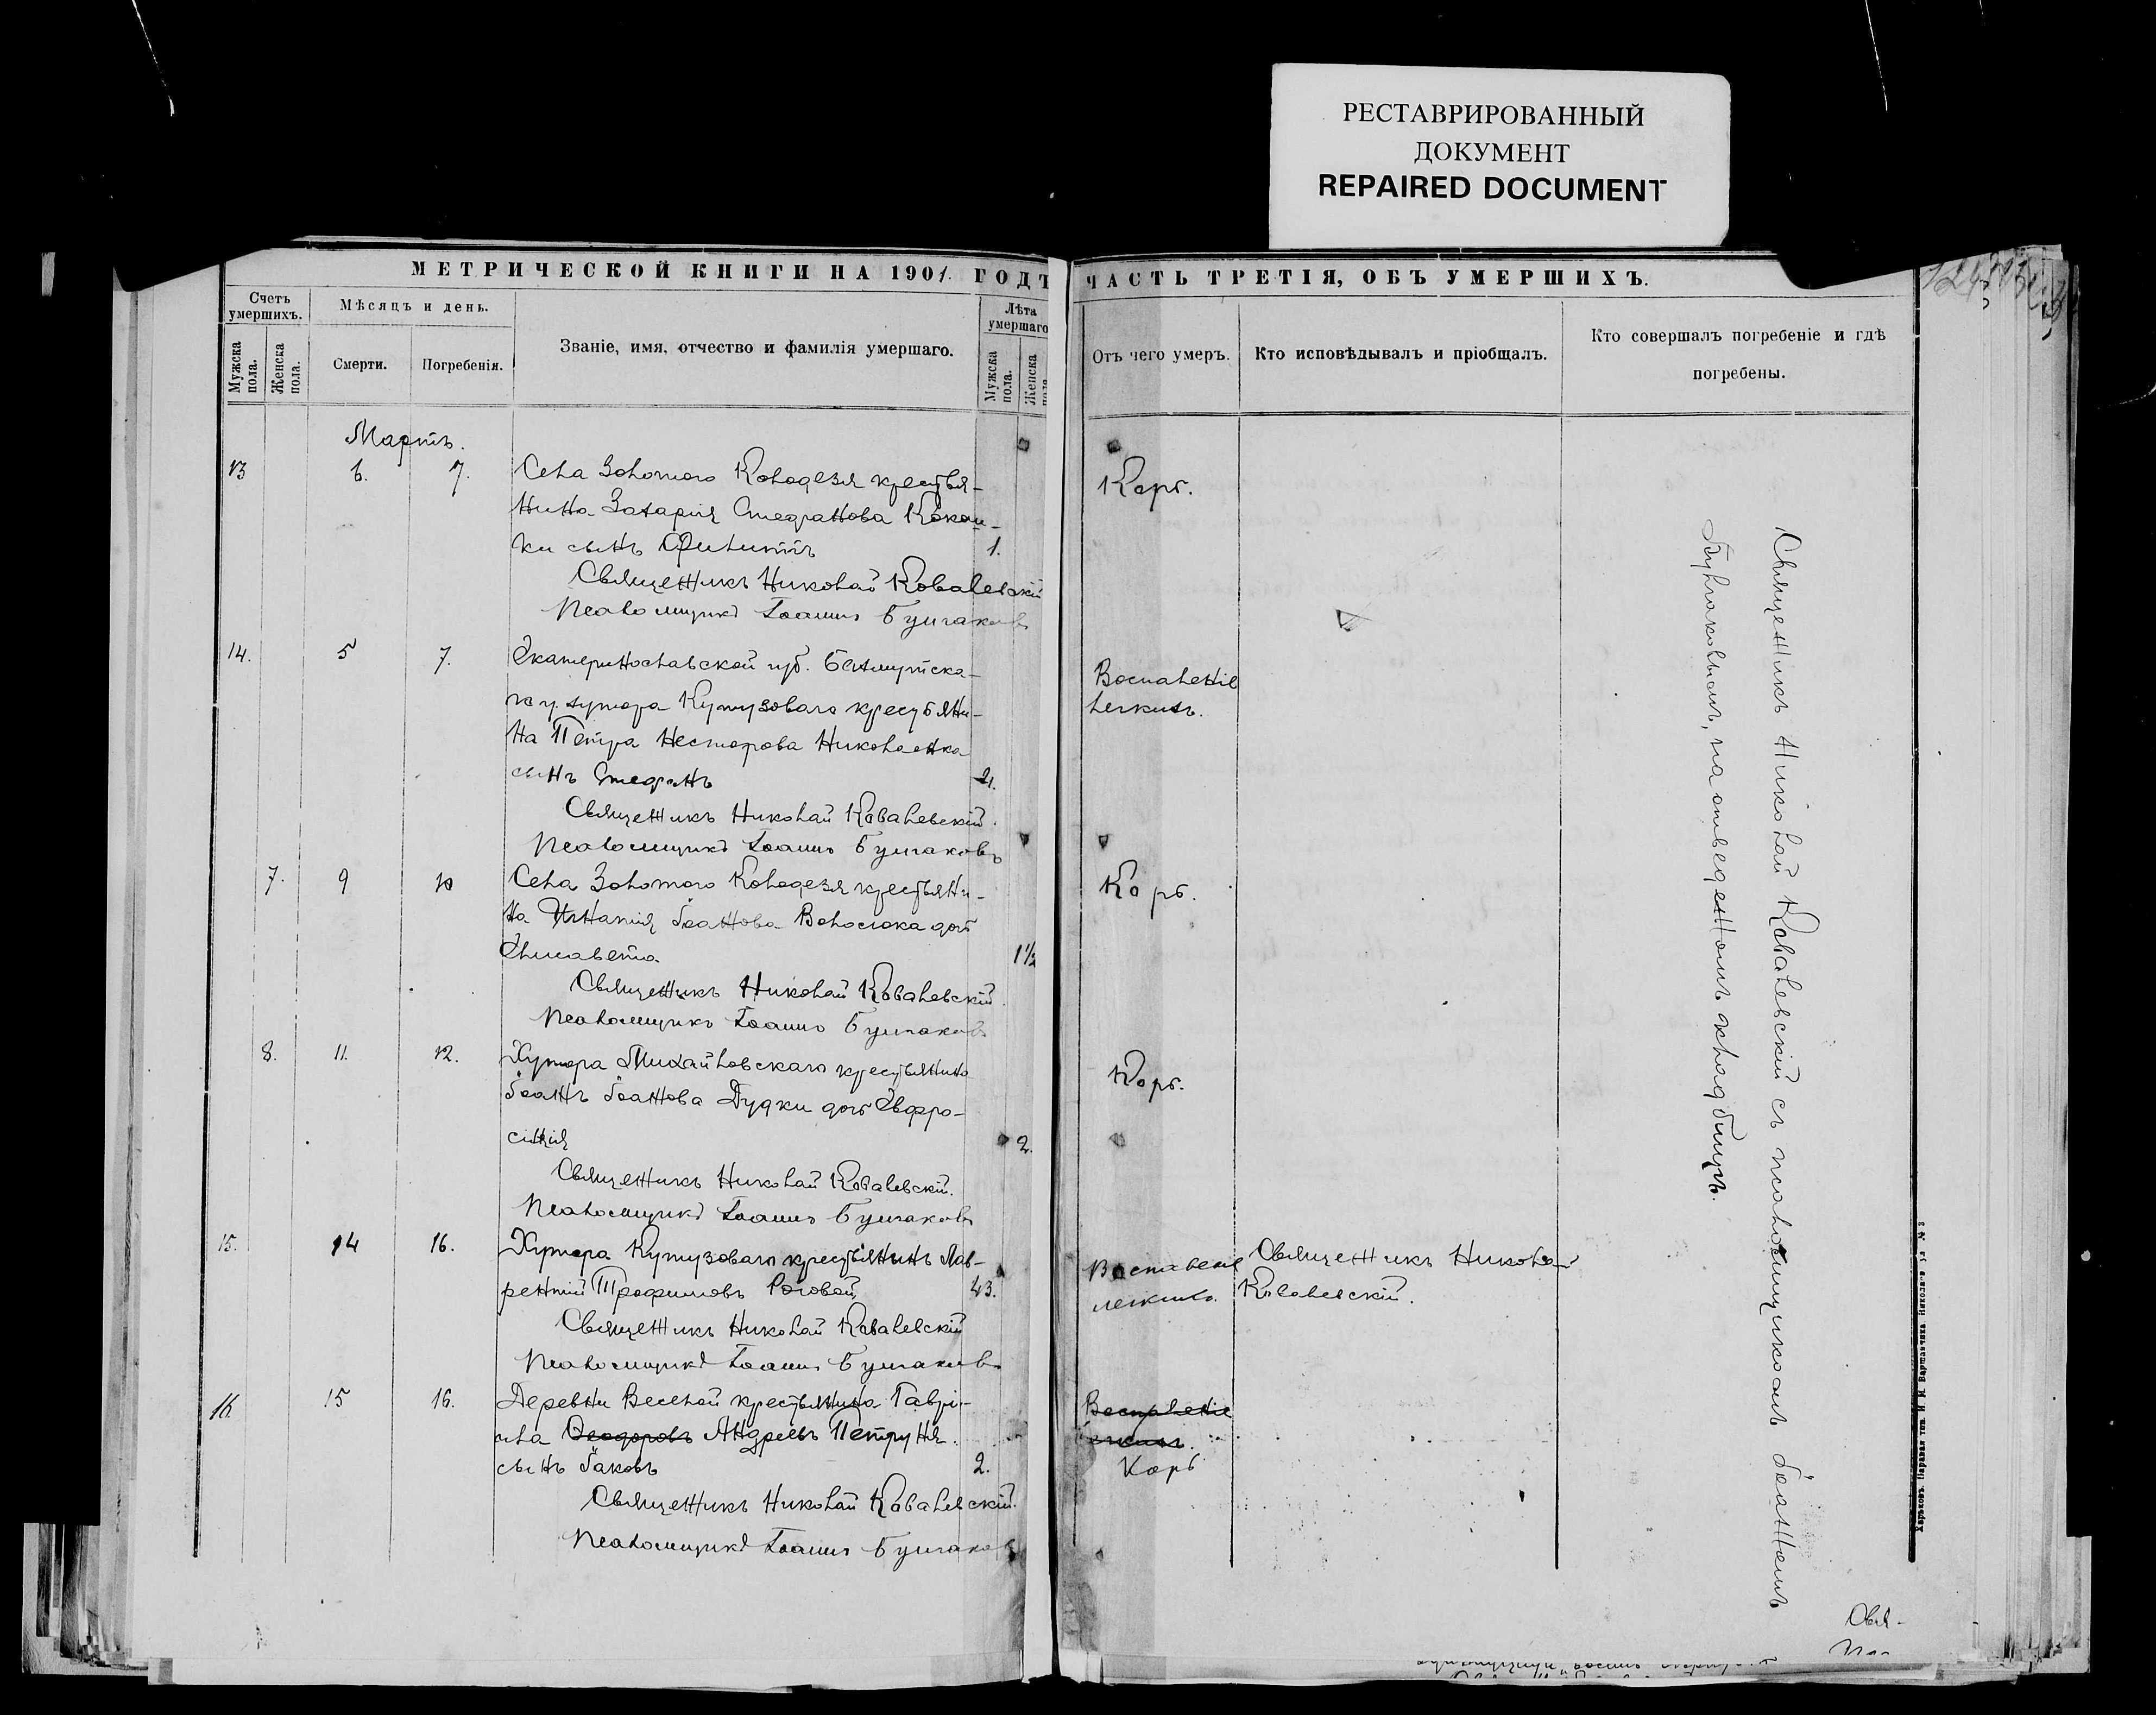 РЕСТАВРИРОВАННЫЙ
ДОКУМЕНТ
REPAIRED DOCUMENT
МЕТРИЧЕСКОЙ КНИГИ НА 1901. ГОДЪ
ЧАСТЬ ТРЕТІЯ, ОБЪ УМЕРШИХЪ.
Счетъ умершихъ.
Мужска пола.
Женска пола.
Мѣсяцъ и день.
Смерти.
Погребенія.
Званіе, имя, отчество и фамилія умершаго.
Лѣта умершаго
Мужска пола.
Женска пола
Отъ чего умеръ.
Кто исповѣдывалъ и пріобщалъ.
Кто совершалъ погребеніе и гдѣ
погребены.
Мартъ.
13 6. 7. Села Золотого Колодезя крестья-
нина Захарія Стефанова Кокош-
ки сынъ Филиппъ 1. Корь.
Священникъ Николай Ковалевскій
Псаломщикъ Іоаннъ Булгаковъ
14. 5 7. Екатеринославской губ. Бахмутска-
го у. хутора Кутузоваго крестьяни- Воспаленіе
на Петра Несторова Николаенка легкихъ.
сынъ Стефанъ 21.
Священникъ Николай Ковалевскій.
Псаломщикъ Іоаннъ Булгаковъ
7. 9 10 Села Золотого Колодезя крестьяни- Корь.
на Игнатія Іоанова Волосюка дочь
Елисавета 1 1/2
Священникъ Николай Ковалевскій
Псаломщикъ Іоаннъ Булгаковъ
8. 11. 12. Хутора Михайловскаго крестьянина Корь.
Іоанъ Іоанова Дудки дочь Евфро-
синія 2.
Священникъ Николай Ковалевскій.
Псаломщикъ Іоаннъ Булгаковъ
15. 14 16. Хутора Кутузоваго крестьянинъ Лав- Воспаленіе Священникъ Николай
рентій Трофимовъ Роговой 43. легкихъ. Ковалевскій.
Священникъ Николай Ковалевскій
Псаломщикъ Іоаннъ Булгаковъ
16. 15 16. Деревни Веселой крестьянина Гаврі- Воспаленіе
ила Ѳеодоровъ Андреевъ Петруня легкихъ.
сынъ Іаковъ 2. Корь
Священникъ Николай Ковалевскій.
Псаломщикъ Іоаннъ Булгаковъ
Священникъ Николай Ковалевскій съ псаломщикомъ Іоанномъ
Булгаковымъ, на отведенномъ кладбищѣ.
Харьковъ. Паровая тип. И. М. Варшавчика
Свя-
Пса